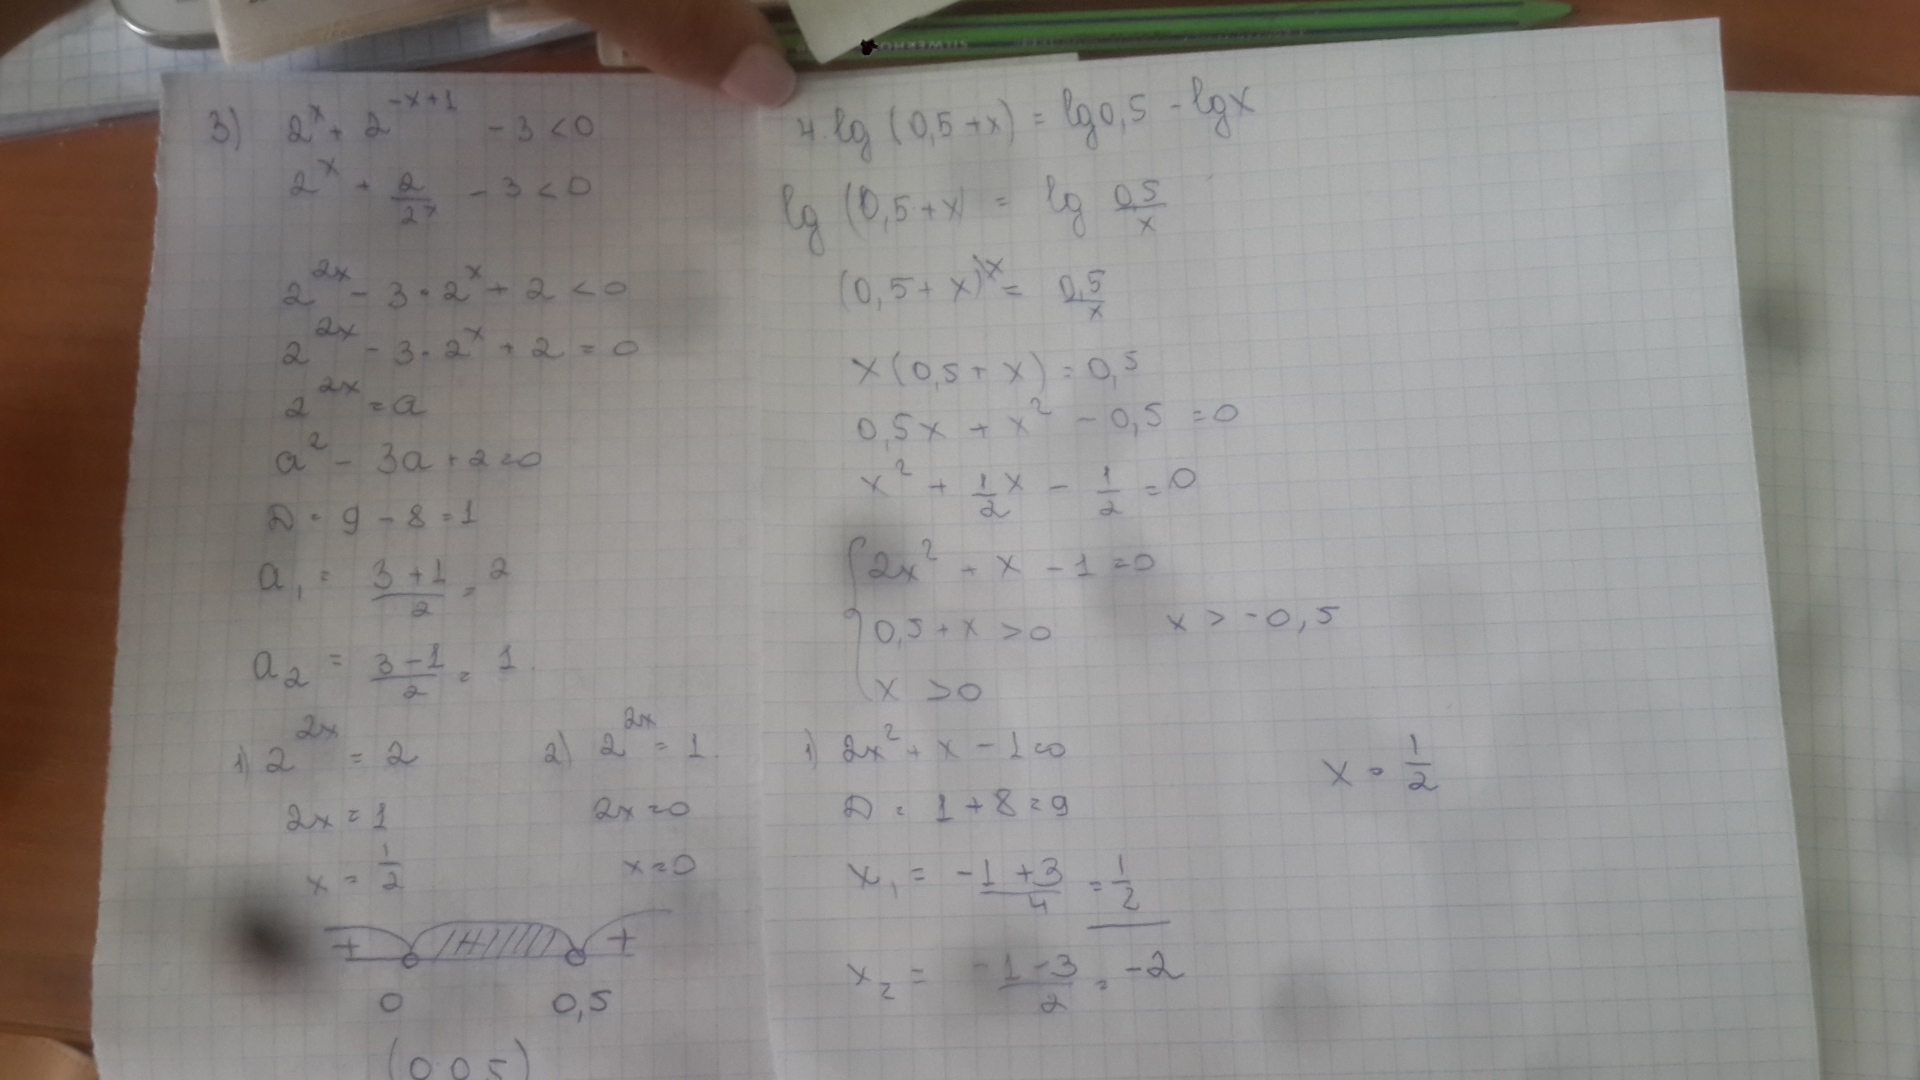 3) 2^x + 2^(-x+1) - 3 < 0
2^x + 2/2^x - 3 < 0
2^(2x) - 3 · 2^x + 2 < 0
2^(2x) - 3 · 2^x + 2 = 0
2^(2x) = a
a^2 - 3a + 2 = 0
D = 9 - 8 = 1
a_1 = (3+1)/2 = 2
a_2 = (3-1)/2 = 1
1) 2^(2x) = 2 2) 2^(2x) = 1.
2x = 1 2x = 0
x = 1/2 x = 0
+ +
0 0,5
(0 0,5)
4. lg (0,5 + x) = lg 0,5 - lg x
lg (0,5 + x) = lg 0,5/x
(0,5 + x)^x = 0,5/x
x (0,5 + x) = 0,5
0,5x + x^2 - 0,5 = 0
x^2 + 1/2 x - 1/2 = 0
{ 2x^2 + x - 1 = 0
0,5 + x > 0 x > -0,5
x > 0
1) 2x^2 + x - 1 = 0 x = 1/2
D = 1 + 8 = 9
x_1 = (-1 + 3)/4 = 1/2
x_2 = (-1 - 3)/2 = -2